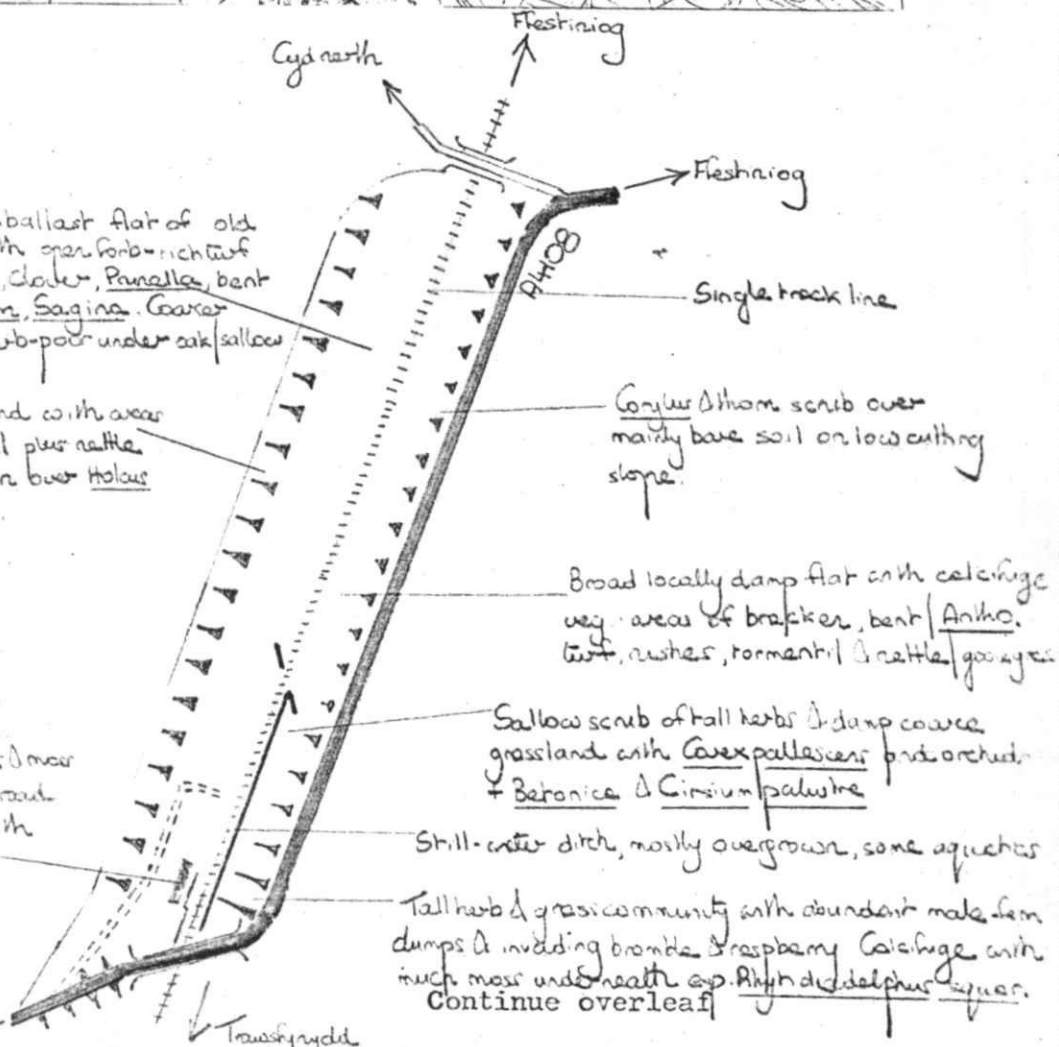 Ffestiniog
Cydnerth
Ffestiniog
A4108
ballast flat of old
open forb-rich turf
, clover, Prunella, bent
, Sagina. Coarser
-poor under oak/sallow
Single track line
Corylus & thorn scrub over
mainly bare soil on low cutting
slope.
and with areas
plus nettle
over Holcus
Broad locally damp flat with calcifuge
veg. areas of bracken, bent/Antho.
turf, rushes, tormentil & nettle/
Sallow scrub of tall herbs & damp coarse
grassland with Carex pallescens and orchid
+ Betonica & Cirsium palustre
& moss
Still-water ditch, mostly overgrown, some aquatics
Tall herb & grass community with abundant male-fern
clumps & invading bramble & raspberry Calcifuge with
much moss underneath esp. Rhytidiadelphus squar.
Continue overleaf
Trawsfynydd